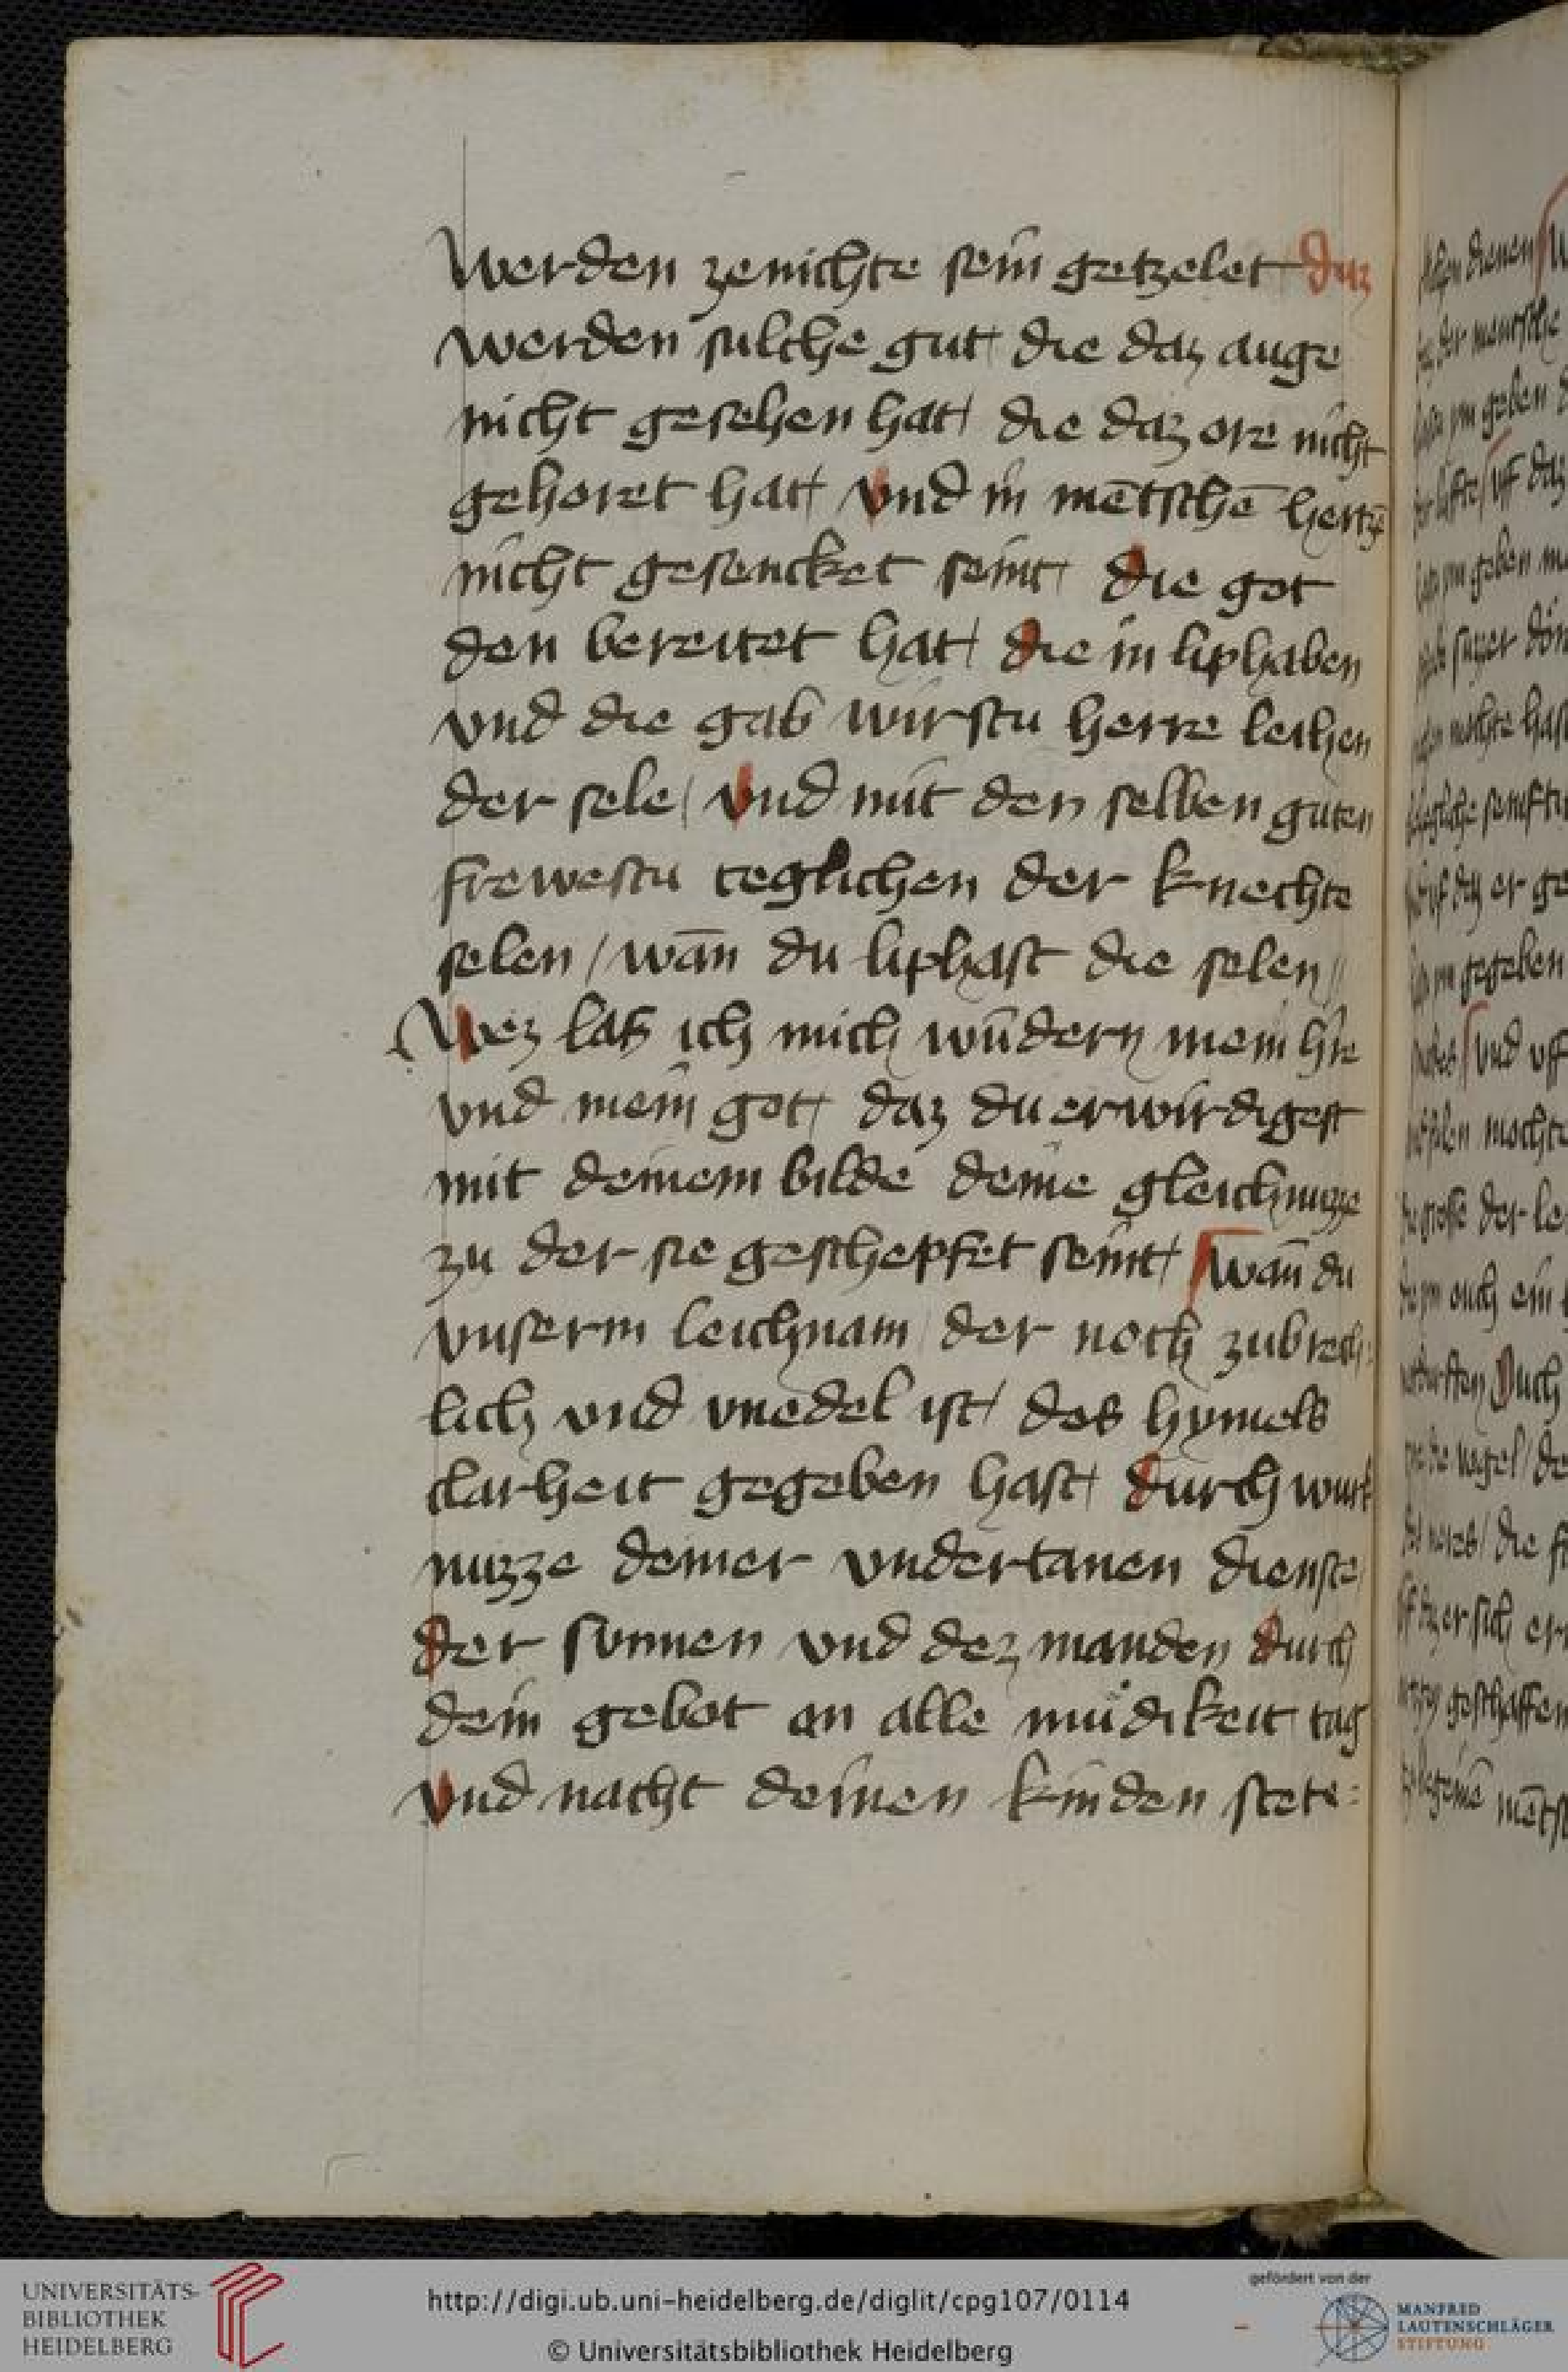 Werden zenichte sein getzelet daz
werden sulche gut die daz auge
nicht gesehen hat die daz ore nicht
gehoret hat vnd in mētschē hertzē
nicht gesencket seint die got
den bereitet hat die in liphaben
vnd die gab wirstu herre leihen
der sele / vnd mit den selben guten
frewestu teglichen der knechte
selen / wān du liphast die selen //
Wez las ich mich wūdern mein hre
vnd mein got daz du erwirdigest
mit deinem bilde deine gleichnuzze
zu der sie geschepfet seint wān du
vnserm leichnam der noch zubrech:
lich vnd vnedel ist / des hymels
clarheit gegeben hast durch wurk
nuzze deiner vndertanen dienste
der sunnen vnd dez manden durch
dein gebot an alle mudikeit tag
vnd nacht deinen kinden stete:
UNIVERSITÄTS-
BIBLIOTHEK
HEIDELBERG
http://digi.ub.uni-heidelberg.de/diglit/cpg107/0114
© Universitätsbibliothek Heidelberg
gefördert von der
MANFRED
LAUTENSCHLÄGER
STIFTUNG